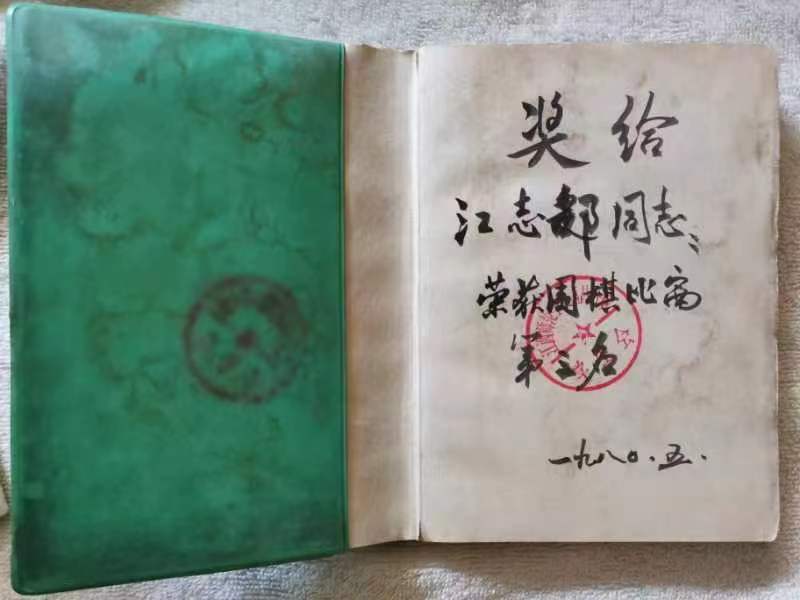 奖给
江志郡同志：
荣获围棋比赛
第三名
一九八〇.五.